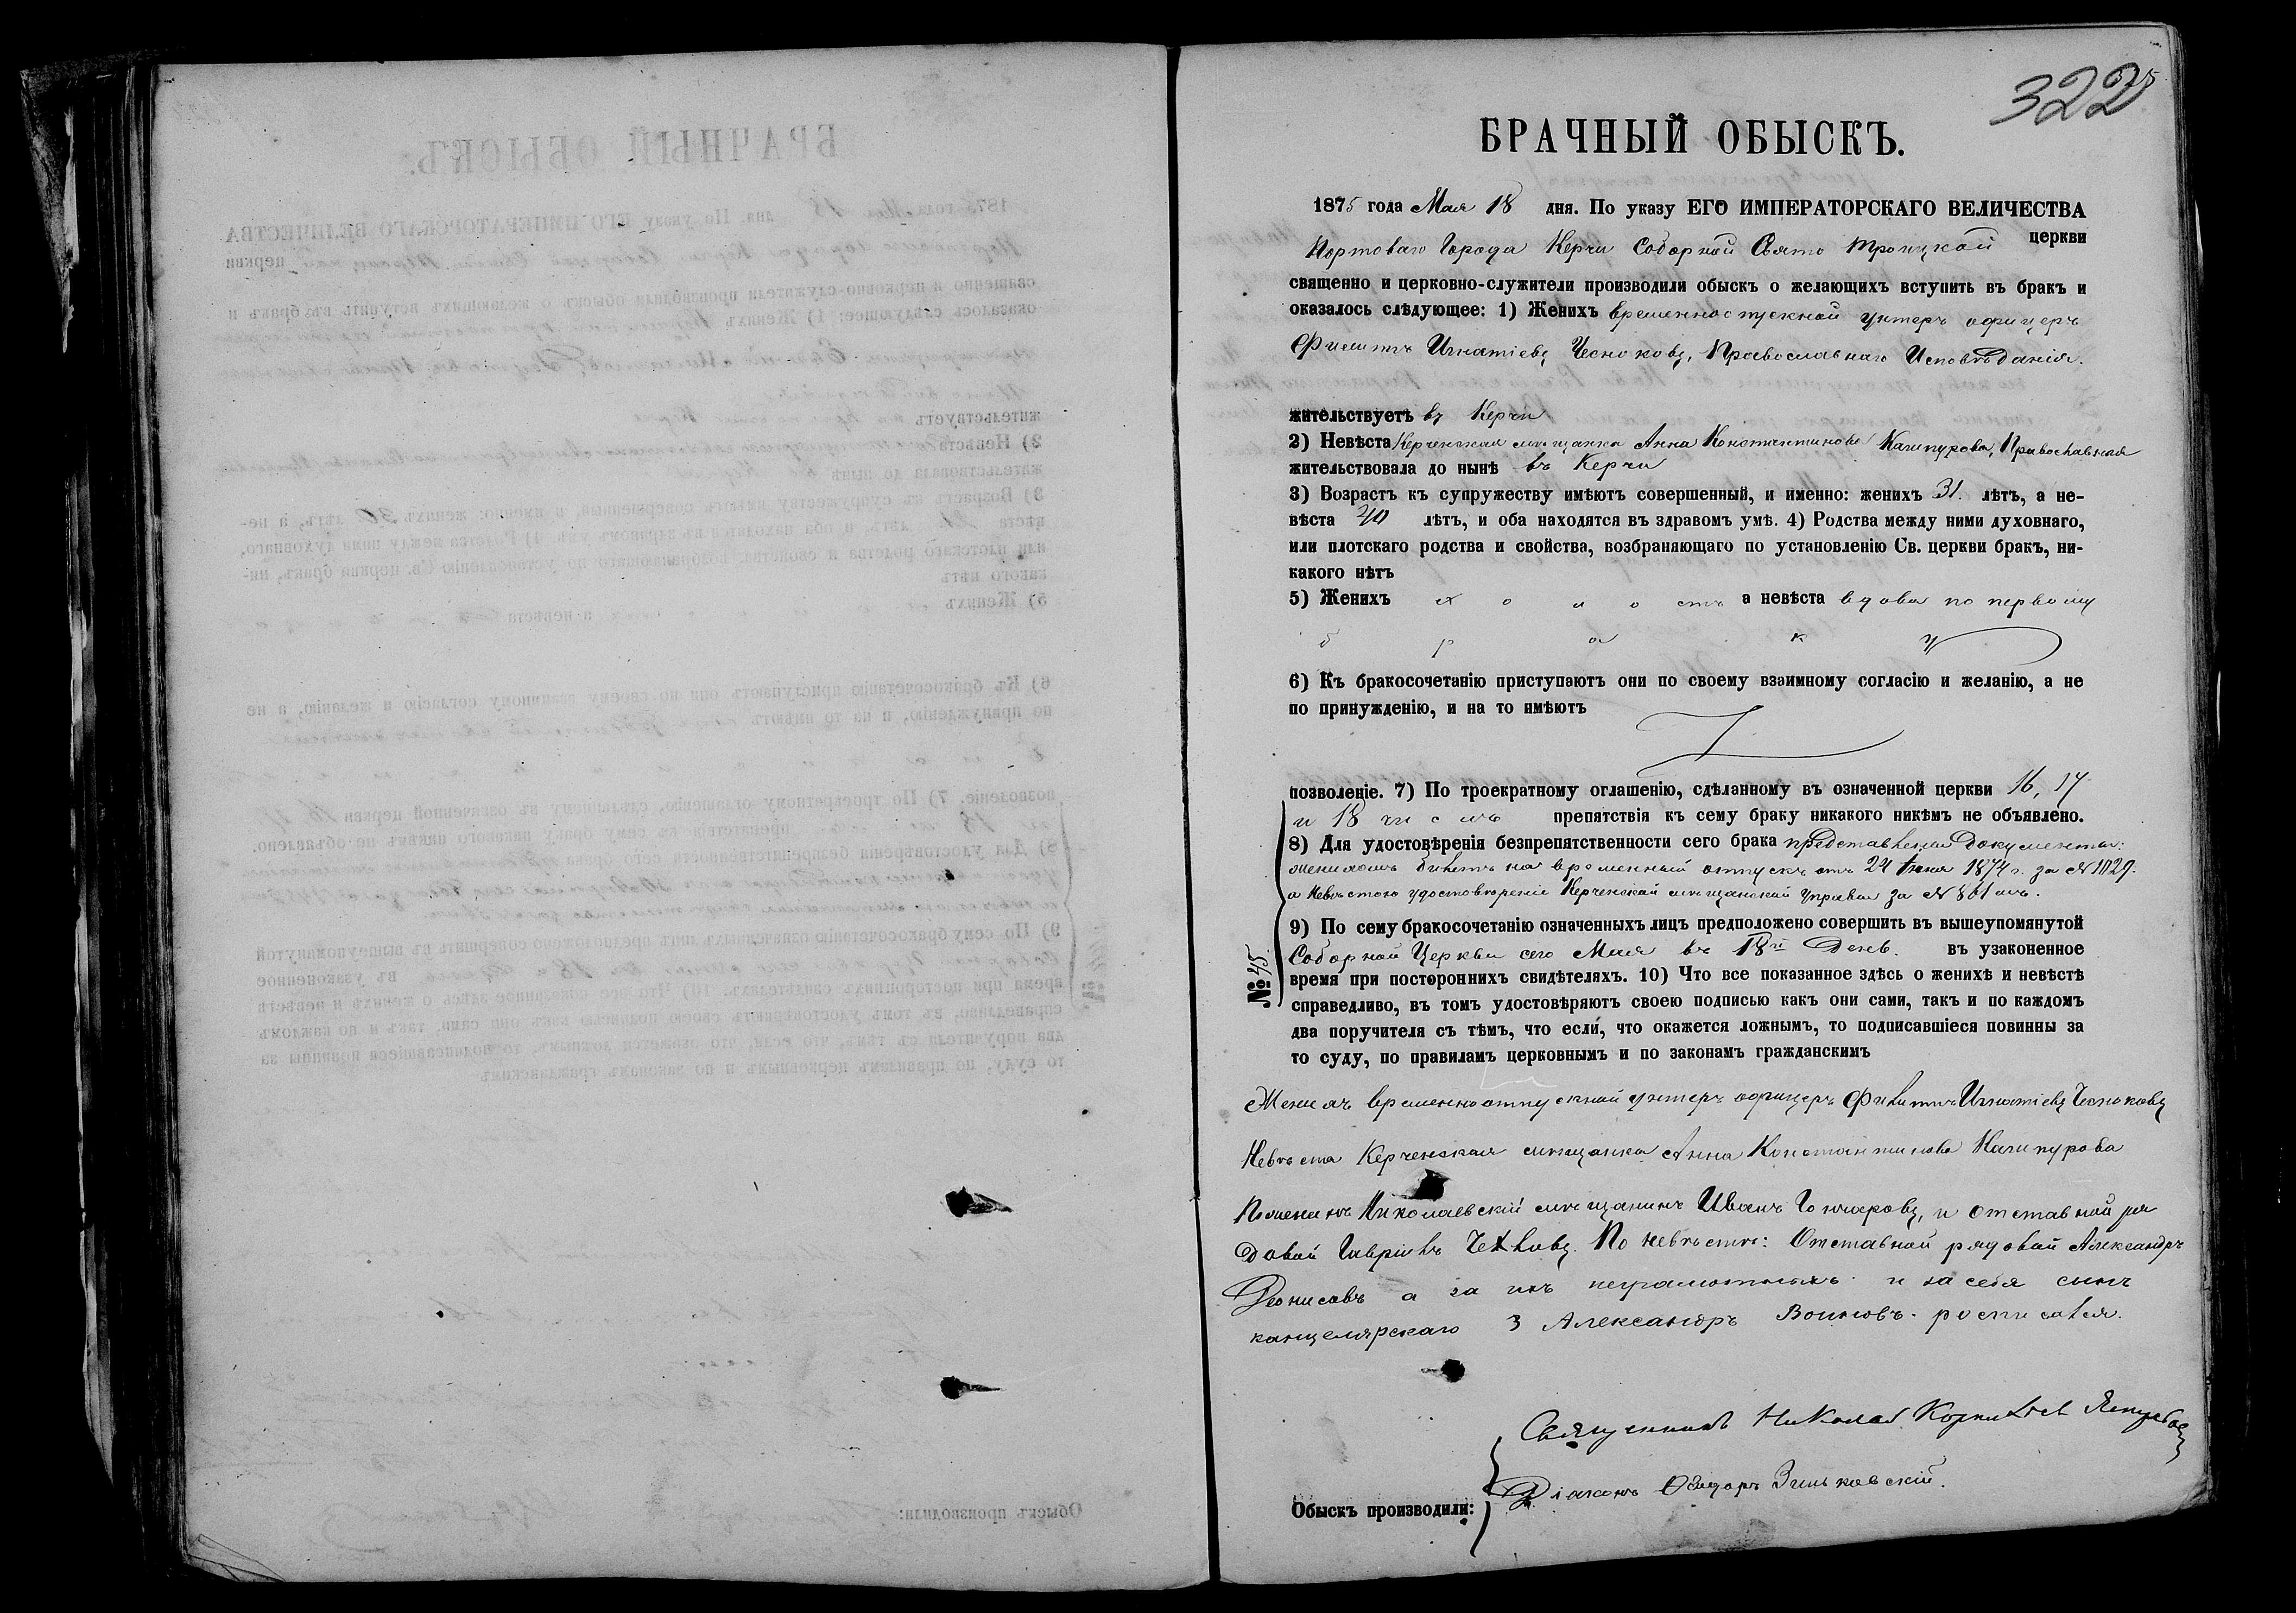 322
БРАЧНЫЙ ОБЫСКЪ.
1875 года Мая 18 дня. По указу ЕГО ИМПЕРАТОРСКАГО ВЕЛИЧЕСТВА
Портоваго Города Керчи Соборной Свято Троицкой церкви
священно и церковно-служители производили обыскъ о желающихъ вступить въ бракъ и
оказалось слѣдующее: 1) Женихъ временноотпускной унтеръ офицеръ
Филиппъ Игнатіевъ Чесноковъ, Православнаго Исповѣданія.
жительствуетъ въ Керчи
2) Невѣста Керченская мѣщанка Анна Константинова Качипурова, Православная
жительствовала до нынѣ въ Керчи
3) Возрастъ къ супружеству имѣютъ совершенный, и именно: женихъ 31. лѣтъ, а не-
вѣста 40 лѣтъ, и оба находятся въ здравомъ умѣ. 4) Родства между ними духовнаго,
или плотскаго родства и свойства, возбраняющаго по установленію Св. церкви бракъ, ни-
какого нѣтъ
5) Женихъ х о л о стъ а невѣста вдова по первому
б р а к у
6) Къ бракосочетанію приступаютъ они по своему взаимному согласію и желанію, а не
по принужденію, и на то имѣютъ
позволеніе. 7) По троекратному оглашенію, сдѣланному въ означенной церкви 16, 17
и 18 числъ препятствія къ сему браку никакого никѣмъ не объявлено.
8) Для удостовѣренія безпрепятственности сего брака представлены документы:
женихомъ билетъ на временный отпускъ отъ 24 1874 г. за № 1029.
а Невѣстою удостовѣреніе Керченской мѣщанской управы за № 861мъ.
9) По сему бракосочетанію означенныхъ лицъ предположено совершить въ вышеупомянутой
Соборной Церкви сего Мая въ 18й День. въ узаконенное
№ 45.
время при постороннихъ свидѣтеляхъ. 10) Что все показанное здѣсь о женихѣ и невѣстѣ
справедливо, въ томъ удостовѣряютъ своею подписью какъ они сами, такъ и по каждомъ
два поручителя съ тѣмъ, что если, что окажется ложнымъ, то подписавшіеся повинны за
то суду, по правиламъ церковнымъ и по законамъ гражданскимъ
Женихъ временноотпускной унтеръ офицеръ Филиппъ Игнатіевъ Чесноковъ
Невѣста Керченская мѣщанка Анна Константинова Качипурова
По женихѣ Николаевскій мѣщанинъ Иванъ Гончаровъ, и отставной ря
довой Гавріилъ Чеховъ. По невѣстѣ: Отставной рядовой Александръ
Денисовъ а за ихъ неграмотныхъ и за себя сынъ
канцелярскаго Александръ Воиновъ росписался.
Священникъ Николай
Діаконъ Ѳеодоръ Зиньковскій.
Обыскъ производили: